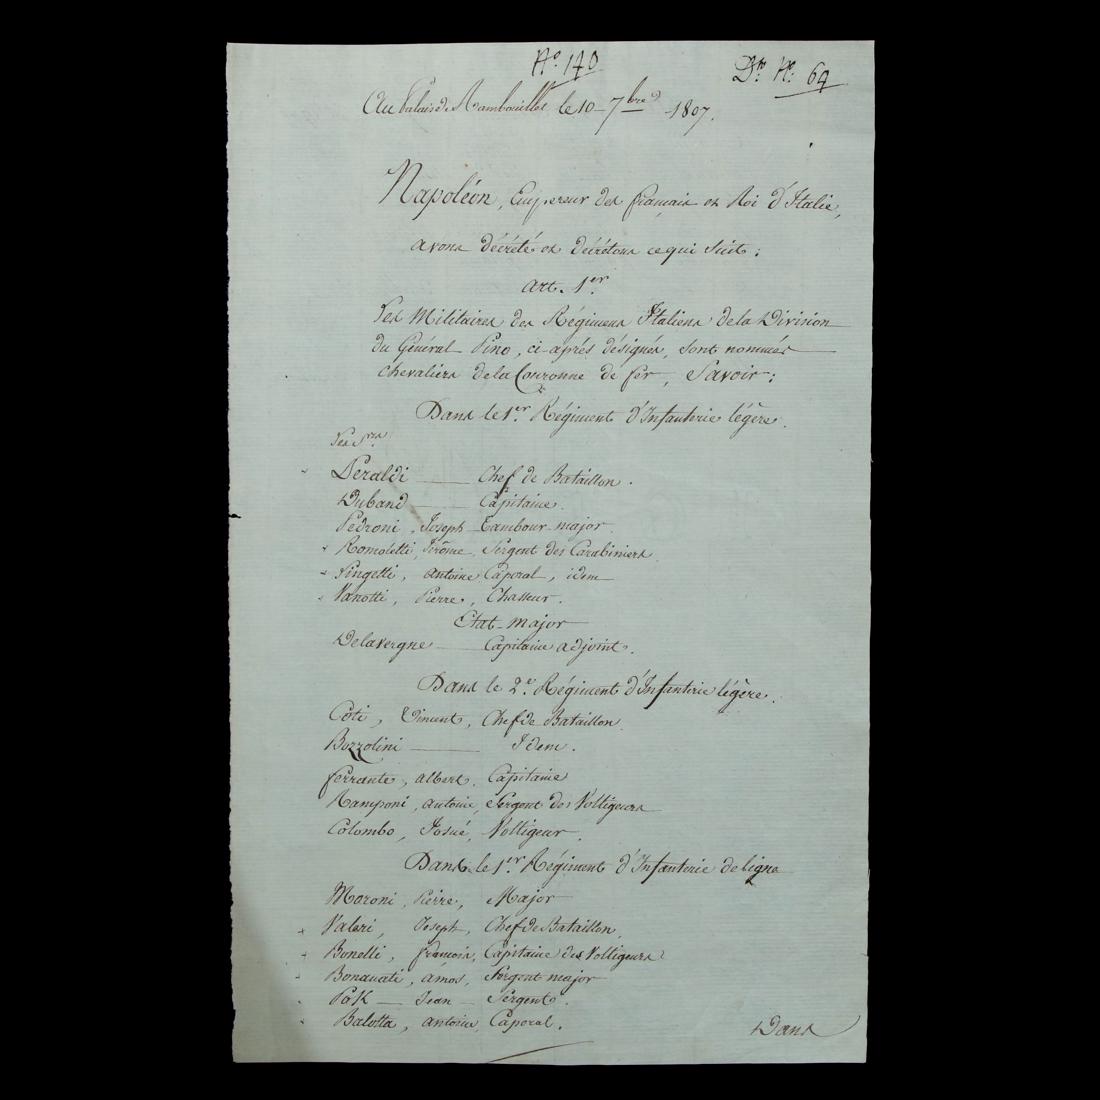 N.º 140
D.m N.º 69
Au Palais de Rambouillet le 10 7bre 1807.
Napoléon, Empereur des français et Roi d'Italie,
avons décrété et décrétons ce qui suit :
Art. 1er
Les Militaires des Régimens Italiens de la Division
du Général Pino, ci-après désignés, sont nommés
chevaliers de la Couronne de fer, Savoir :
Dans le 1er Régiment d'Infanterie légère.
Les Srs
Peraldi — Chef de Bataillon.
Duband — Capitaine.
Pedroni, Joseph Tambour-major.
Romoletti, Jérôme, Sergent des Carabiniers
Pingetti, antoine Caporal, idem
Vanotti, Pierre, Chasseur.
Etat-major
Delavergne — Capitaine adjoint.
Dans le 2e Régiment d'Infanterie légère.
Coti, Vincent, Chef de Bataillon
Bozzolini — Idem.
ferrante, albert, Capitaine
Ramponi, antoine, Sergent des Voltigeurs
Colombo, Josué, Voltigeur.
Dans le 1er Régiment d'Infanterie de ligne
Moroni, Pierre, Major
Valeri, Joseph, Chef de Bataillon,
Bonelli, françois, Capitaine des Voltigeurs
Bonavati, amos, Sergent major
Pak — Jean — Sergent.
Balotta, antoine, Caporal.
Dans